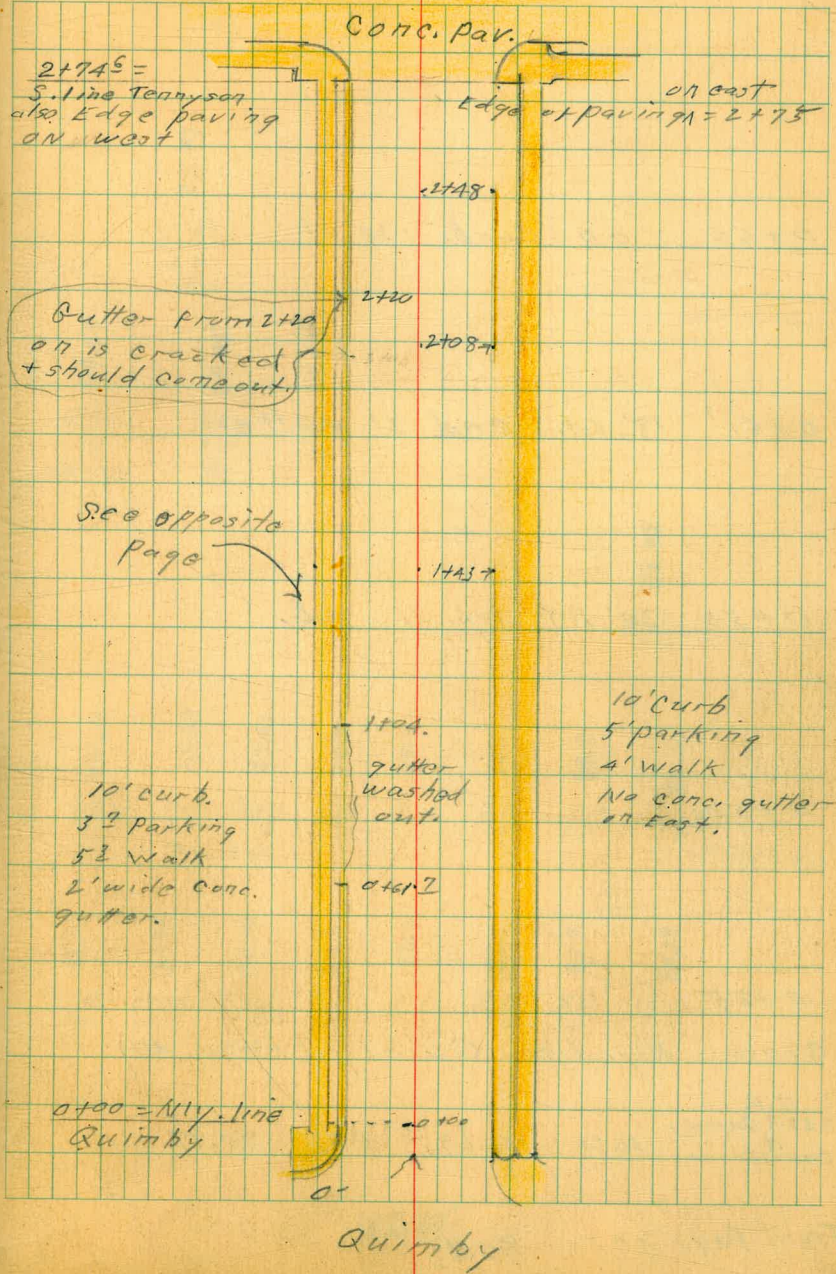 Conc. Pav.
2+74⁵ =
S. line Tennyson
also Edge paving
on west
on east
Edge of paving ^ = 2+75
2+48
2+20
Gutter from 2+20
on is cracked
+ should come out.
2+08
See opposite
page
1+43
1+04.
gutter
washed
out.
0+61⁷
10' curb.
3⁷ Parking
5³ Walk
2' wide conc.
gutter.
10' Curb
5' parking
4' Walk
No conc. gutter
on East.
0+00 = N'ly. line
Quimby
0+00
Quimby